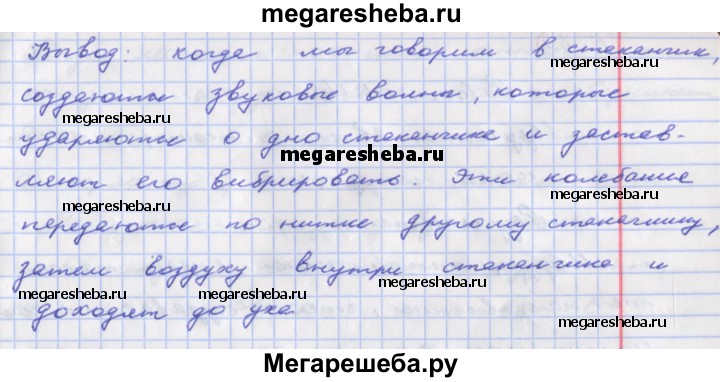 megaresheba.ru
Вывод: когда мы говорим в стаканчик,
megaresheba.ru
megaresheba.ru
создаются звуковые волны, которые
megaresheba.ru
megaresheba.ru
ударяются о дно стаканчика и застав-
megaresheba.ru
ляют его вибрировать. Эти колебания
megaresheba.ru
megaresheba.ru
передаются по нитке другому стаканчику,
затем воздуху внутри стаканчика и
megaresheba.ru
megaresheba.ru
доходят до уха
megaresheba.ru
Мегарешеба.ру